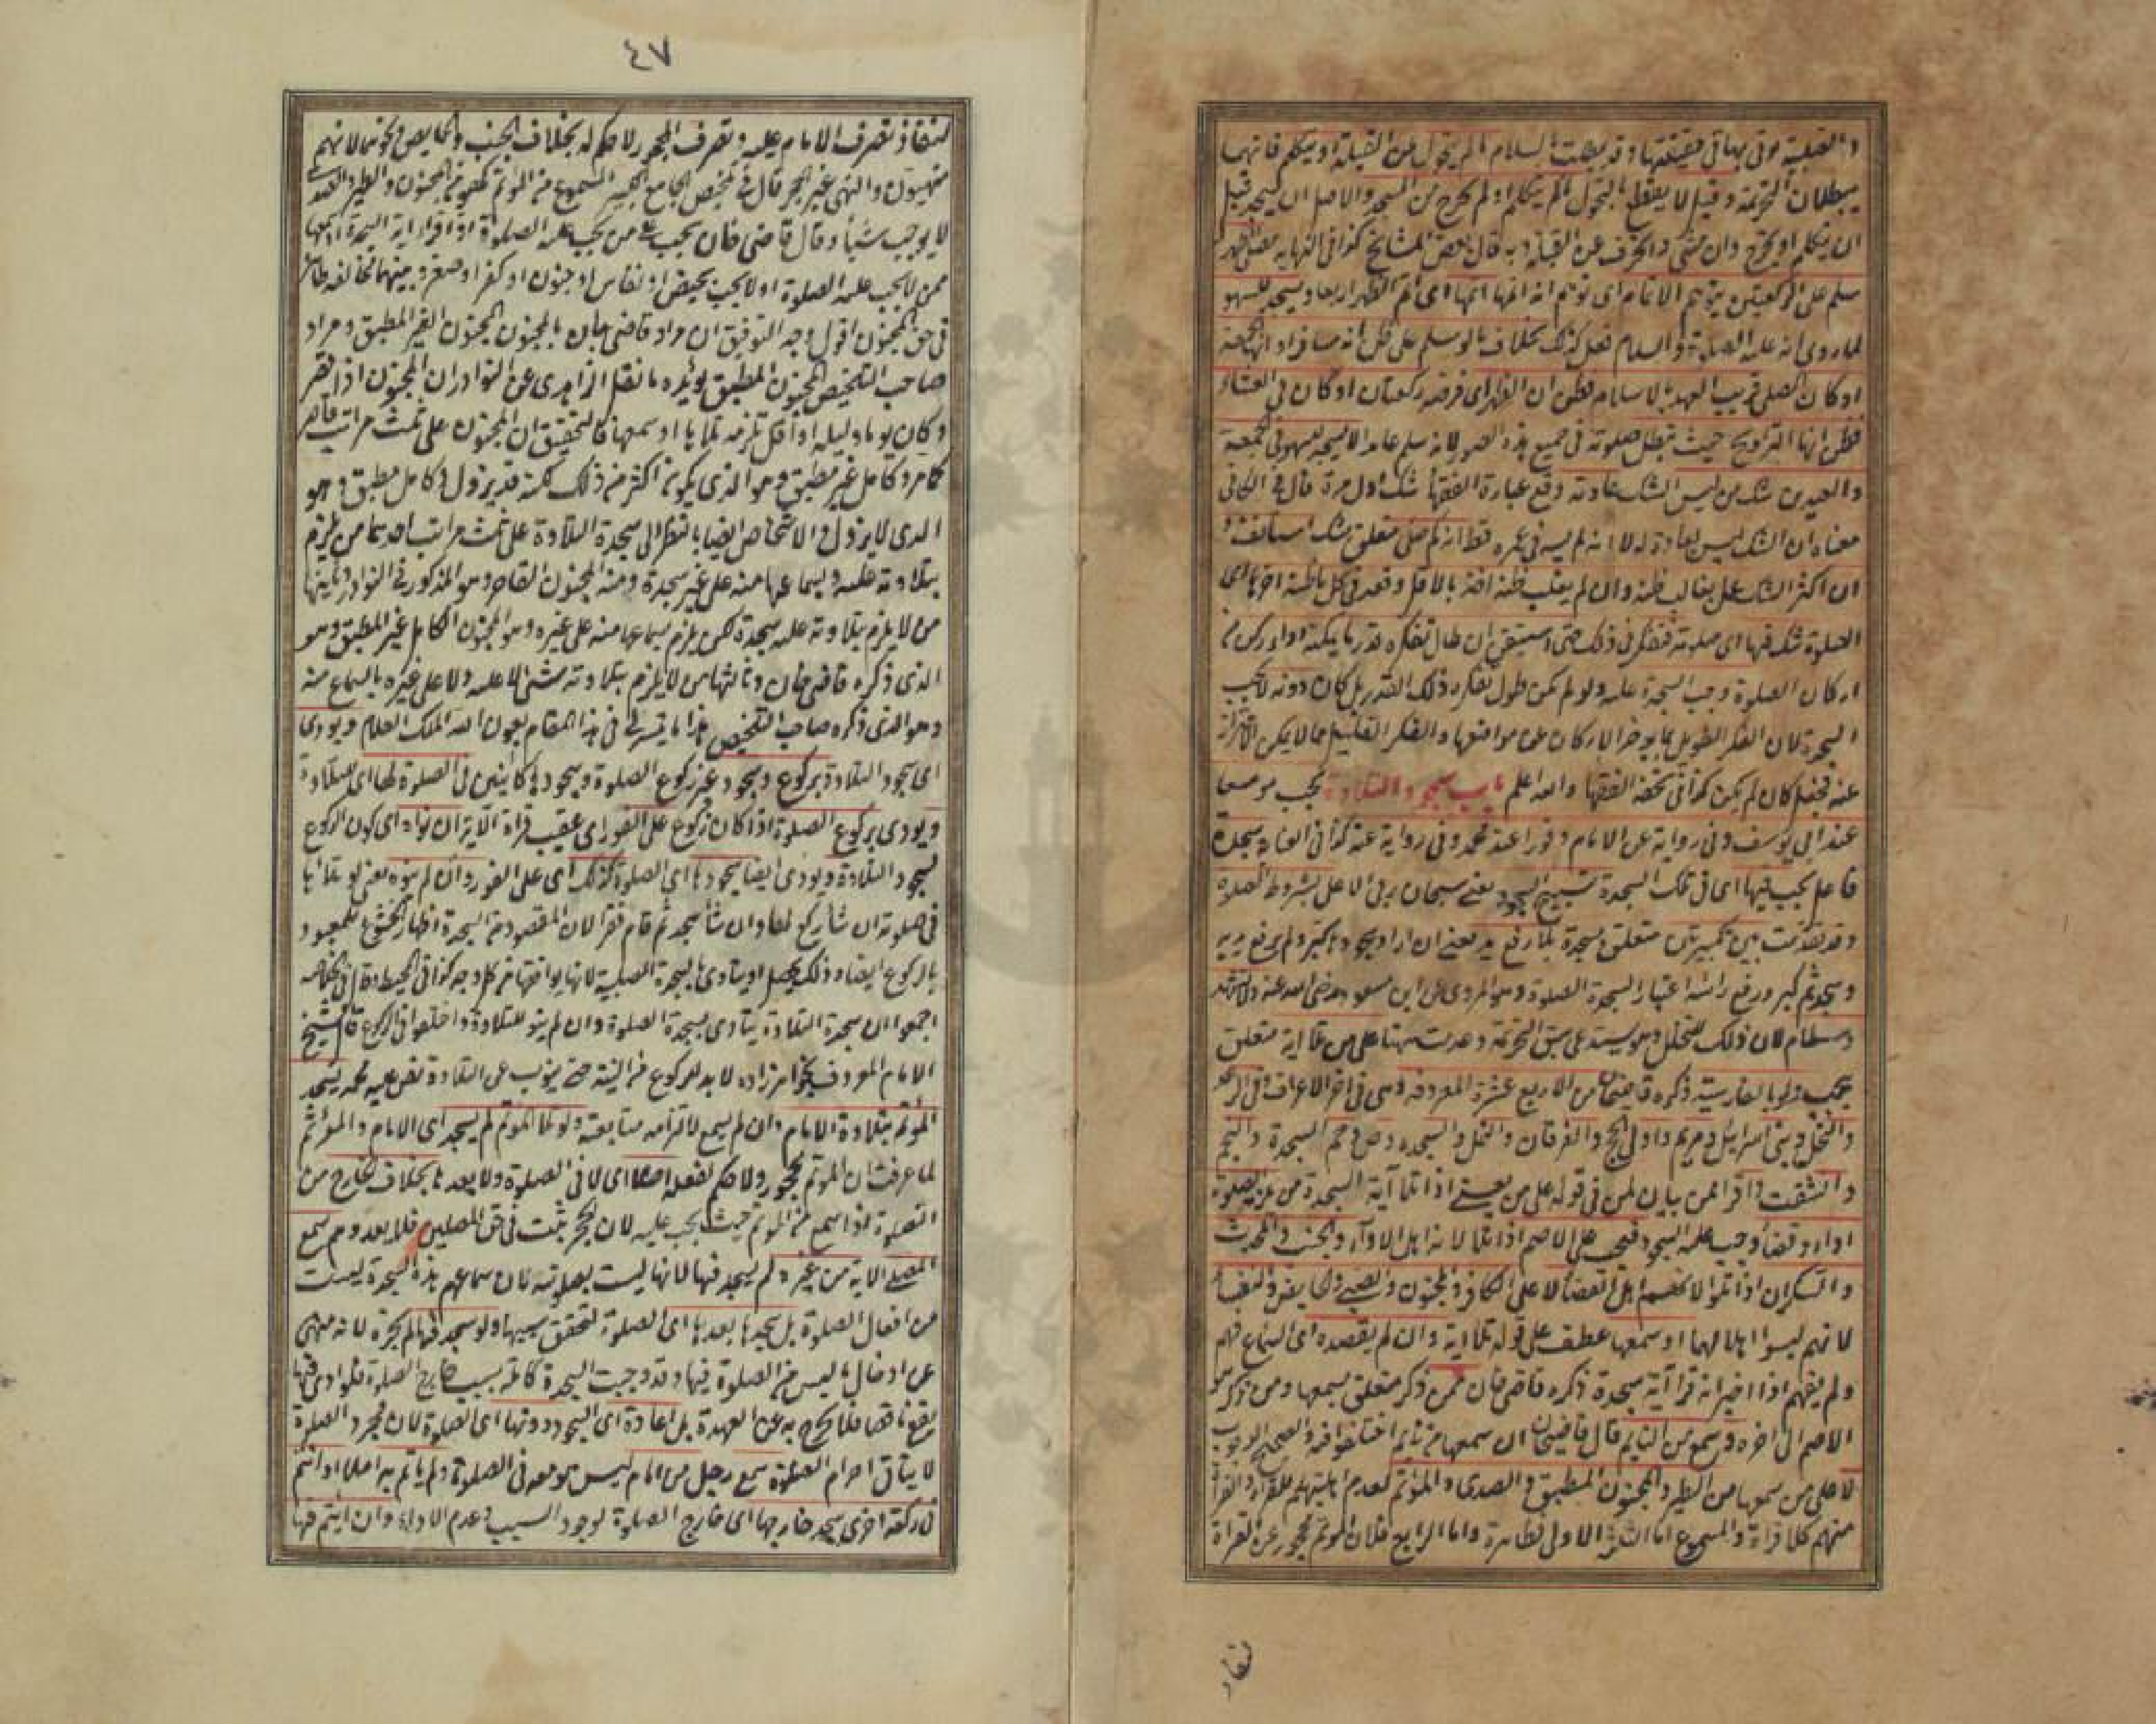 والصلبية يؤتى بها في حقيقتها وقد بطلت السلام الم يتحول عن القبلة او يتكلم فانهما
يبطلان التحريمة وقيل لا يقطع بالتحول ما لم يتكلم او لم يخرج من المسجد والاصل ان يسجد قبل
ان يتكلم او يخرج وان مشى وانحرف عن القبلة وبه قال بعض المشايخ كذا في النهاية مصلى الظهر
سلم على الركعتين بتوهم الاتمام اى توهم انه اتمها اتمها اى اتم الظهر اربعا ويسجد للسهو
لما روى انه عليه الصلوة والسلام فعل كذلك بخلاف ما لو سلم على ظن انه مسافر او انها الجمعة
او كان المصلى قريب العهد بالاسلام فظن ان الظهر اى فرضه ركعتان او كان في العشاء
فظن انها التراويح حيث تبطل صلوته في جميع هذه الصور لانه سلم عامدا لا يسجد لسهو في الجمعة
والعيدين شك من ليس الشك عادته وقع عبارة الفقها شك اول مرة قال في الكافى
معناه ان الشك ليس بعادة له لا انه لم يسه في عمره قط انه كم صلى متعلق بشك استأنف و
ان اكثر الشك عمل بغالب ظنه وان لم يغلب ظنه اخذ بالاقل وقعد في كل ما ظنه اخرها اى
الصلوة شك فيها اى صلوته فتفكر في ذلك حتى استيقن ان طال تفكره قدر ما يمكنه اداء ركن من
اركان الصلوة وجب السجدة عليه ولو لم يكن طول تفكره ذلك القدر بل كان دونه لا تجب
السجدة لان الفكر الطويل مما يوخر الاركان عن مواضعها والفكر القليل مما لا يمكن الاحتراز
عنه فجعل كان لم يكن كذا في تحفة الفقها والله اعلم باب سجود التلاوة تجب موسعا
عند ابى يوسف وفي رواية عن الامام وفورا عند محمد وفي رواية عنه كذا في العناية سجدة
فاعل تجب فيها اى في تلك السجدة تسبيح السجود يعنى سبحان ربى الاعلى بشروط الصلوة
وقد تقدمت بين تكبيرتين متعلق بسجدة بلا رفع يد يعنى ان اراد سجودها كبر ولم يرفع يديه
وسجد ثم كبر ورفع رأسه اعتبارا لسجدة الصلوة وهو المروى عن ابن مسعود رضى الله عنه ولا تشهد
وسلام لان ذلك للتحلل وهو يستدعى سبق التحريمة وعدمت ههنا على من تلا اية متعلق
بتجب ولو بالفارسية ذكره قاضيخان من الاربع عشرة المعروفة وهى في اخر الاعراف وفي الرعد
والنحل وبنى اسرائيل ومريم واول الحج والفرقان والنمل والسجده وص وحم السجدة والنجم
وانشقت واقرأ ممن بيان لمن في قوله على من يعنى اذا تلا آية السجدة من يلزمه الصلوة
اداء وقضاء وجب عليه السجود فتجب على الاصم اذا تلا لانه اهل الاداء والجنب والمحدث
والسكران اذا تلوا لانهم اهل القضاء لا على الكافر والمجنون والصبى والحايض والنفساء
لانهم ليسوا اهلا لهما او سمعها عطف على قوله تلا اية وان لم يقصده اى السماع فهم
ولم يفهم اذا اخبر انه قرأ آية سجدة ذكره قاضى خان ممن ذكر متعلق بسمعها ومن ذكر
الاصم الى اخره وسمع من النايم قال قاضيخان ان سمعها من نايم اختلفوا فيه والصحيح الوجوب
لا على من سمعها من الطير والمجنون المطبق والصدى والمؤتم لعدم اهليتهم للقراءة القراءة
منهم كلا قراءة والمسموع اما الثلثة الاولى فظاهرة واما الرابع فلان المؤتم محجور عن القراءة
لنفاذ
٤٧
لنفاذ تصرف الامام عليه وتصرف المحجور لا حكم له بخلاف الجنب والحايض ونحوهما لانهم
منهيون والنهى غير الحجر قال في تلخيص الجامع الكبير المسموع من المؤتم كهو من المجنون والطير والصدى
لا يوجب شيأ وقال قاضى خان تجب على من تجب عليه الصلوة اذا قرأ اية السجدة او سمعها
ممن لا تجب عليه الصلوة او لا تجب لحيض او نفاس او جنون او كفر او صغر وبينهما مخالفة ظاهرة
في حق المجنون اقول وجه التوفيق ان مراد قاضى خان بالمجنون المجنون الغير المطبق ومراد
صاحب التلخيص المجنون المطبق يؤيده ما نقل الزاهدى عن النوادر ان المجنون اذا قصر
وكان يوما وليلة او اقل تلزمه تلاها او سمعها فالتحقيق ان المجنون على ثلث مراتب قاصر
كما مر وكامل غير مطبق وهو الذى يكون اكثر من ذلك لكنه قد يزول وكامل مطبق وهو
الذى لا يزول والاشخاص ايضا بالنظر الى سجدة التلاوة على ثلث مراتب احدها من يلزم
بتلاوته عليه وبسماعها منه على غيره سجدة ومنه المجنون القاصر وهو المذكور في النوادر وثانيها
من لا يلزم بتلاوته عليه سجدة لكن يلزم بسماعها منه على غيره وهو المجنون الكامل غير المطبق وهو
الذى ذكره قاضى خان وثالثها من لا يلزم بتلاوته شئ لا عليه ولا على غيره بالسماع منه
وهو الذى ذكره صاحب التلخيص هذا ما تيسر لى في هذا المقام بعون الله الملك العلام ويؤدى
اى سجود التلاوة بركوع وسجود غير ركوع الصلوة وسجودها كاينين في الصلوة لها اى للتلاوة
ويؤدى بركوع الصلوة اذا كان الركوع على الفور اى عقيب قراءة الآية ان نواه اى كون الركوع
لسجود التلاوة ويؤدى ايضا بسجودها اى الصلوة كذلك اى على الفور وان لم ينوه يعنى لو تلاها
في صلوته ان شأ ركع لها وان شأ سجد ثم قام فقرأ لان المقصود من السجدة اظهار الخشوع للمعبود و
بالركوع ايضا وذلك يحصل او يتأدى بالسجدة الصلبية لانها يوافقها من كل وجه كذا في المحيط وقال في الخلاصة
اجمعوا ان سجدة التلاوة يتأدى بسجدة الصلوة وان لم ينو للتلاوة واختلفوا في الركوع قال الشيخ
الامام المعروف بخواهر زاده لا بد للركوع من النية حتى ينوب عن التلاوة نص عليه محمد يسجد
المؤتم بتلاوة الامام وان لم يسمع لالتزامه متابعته ولو تلا المؤتم لم يسجد اى الامام والمؤتم
لما عرفت ان المؤتم محجور ولا حكم لفعله اصلا اى لا في الصلوة ولا بعدها بخلاف الخارج من
الصلوة اذا سمع من المؤتم حيث تجب عليه لان الحجر ثبت في حق المصلين فلا يعدوهم سمع
المصلى الاية من غيره لم يسجد فيها لانها ليست بصلوتيه لان سماعهم هذه السجدة ليست
من افعال الصلوة بل سجدها بعدها اى الصلوة لتحقق سببها ولو سجد فيها لم يجزه لانه منهى
عن ادخال ما ليس من الصلوة فيها وقد وجبت السجدة كاملة بسبب خارج الصلوة فلو ادى فيها
يقع ناقصا فلا يخرج به عن العهدة بل اعادة اى السجود دونها اى الصلوة لان مجرد الصلوة
لا ينافى احرام الصلوة سمع رجل من امام ليس هو معه في الصلوة ولم ياتم به اصلا او ائتم
في ركعة اخرى سجد خارجها اى خارج الصلوة لوجود السبب وعدم الاداء وان ايتم فيها